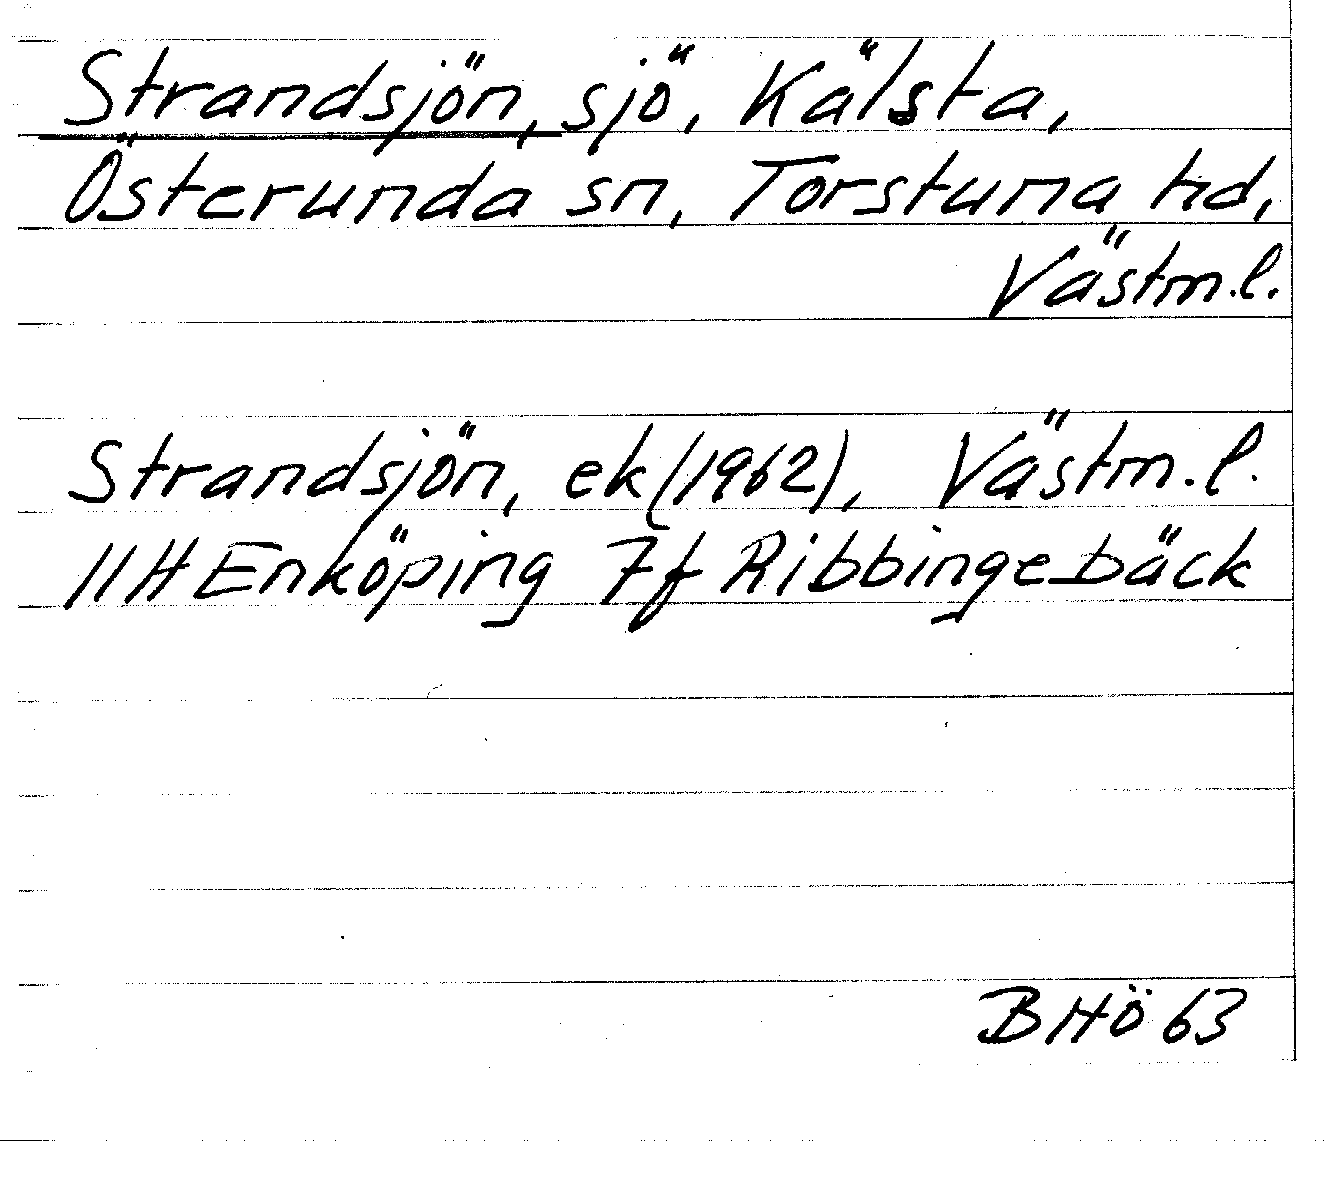 Strandsjön, sjö, Kälsta,
Österunda sn, Torstuna hd,
Västm.l.
Strandsjön, ek (1962), Västm.l.
11H Enköping 7f Ribbingebäck
BHö 63